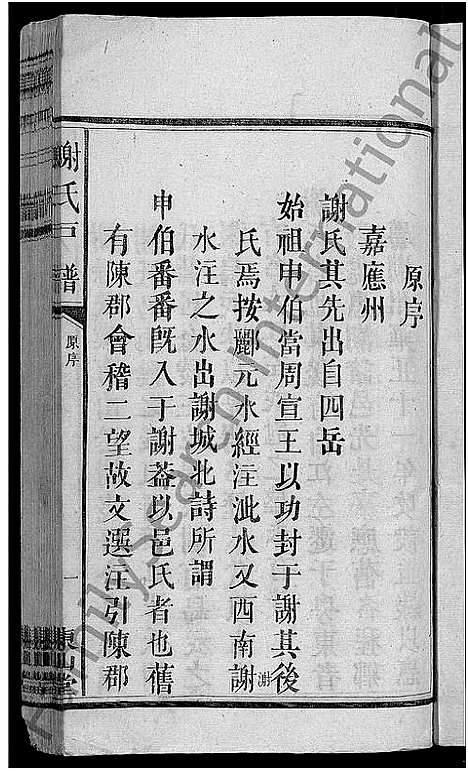 原序
嘉應州
謝氏其先出自四岳
始祖申伯當周宣王以功封于謝其後
氏焉按酈元水經注泚水又西南謝㴬
水注之水出謝城北詩所謂
申伯番番旣入于謝葢以邑氏者也舊
有陳郡會稽二望故文選注引陳郡
謝氏 譜
原序
一
東山堂
FamilySearch International